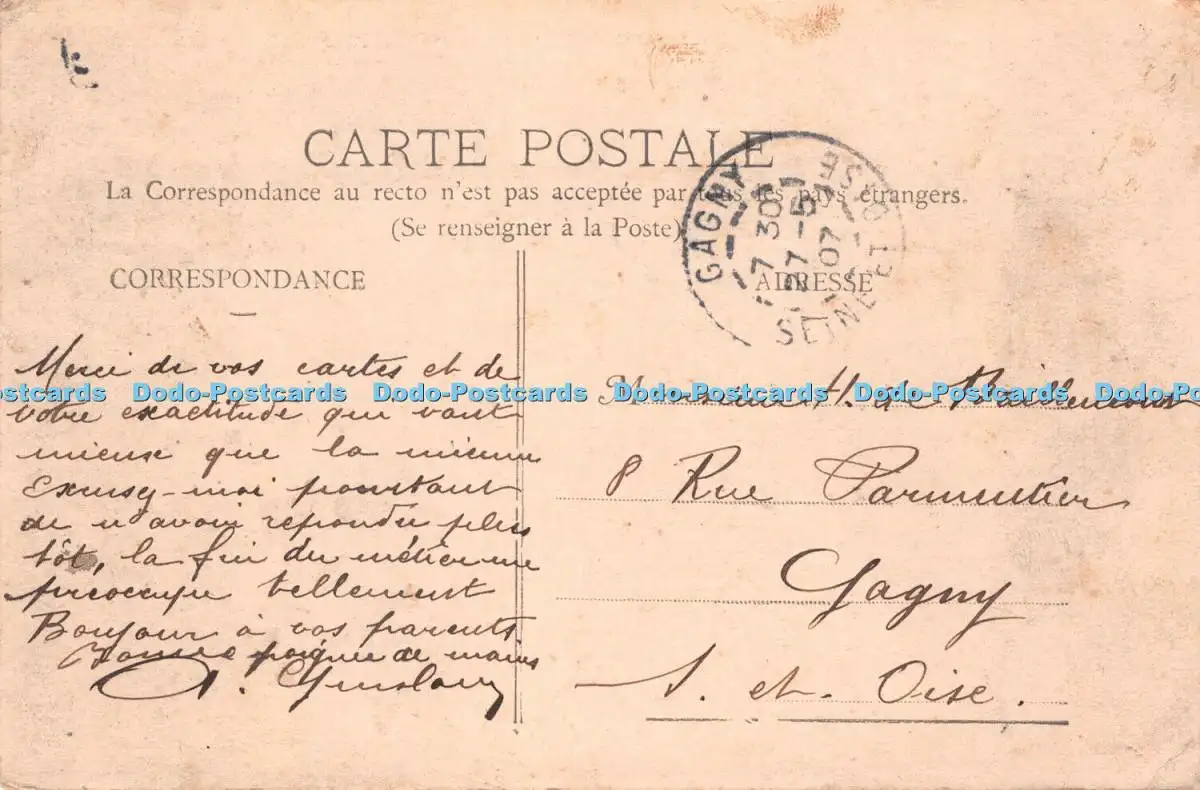 CARTE POSTALE
La Correspondance au recto n'est pas acceptée par tous les pays étrangers.
(Se renseigner à la Poste)
GAGNY
7 30
27 -5
07
SEINE ET OISE
CORRESPONDANCE
ADRESSE
Merci de vos cartes et de
votre exactitude que vaut
mieux que la mienne
Excusez-moi pourtant
de n'avoir répondu plus
tôt, la fin du métier me
préoccupe tellement
Bonjour à vos parents
Bonne poignée de mains
Monsieur H. de
8 Rue Parmentier
Gagny
S. et Oise.
Postcards Dodo-Postcards Dodo-Postcards Dodo-Postcards Dodo-Postcards Dodo-Postcards